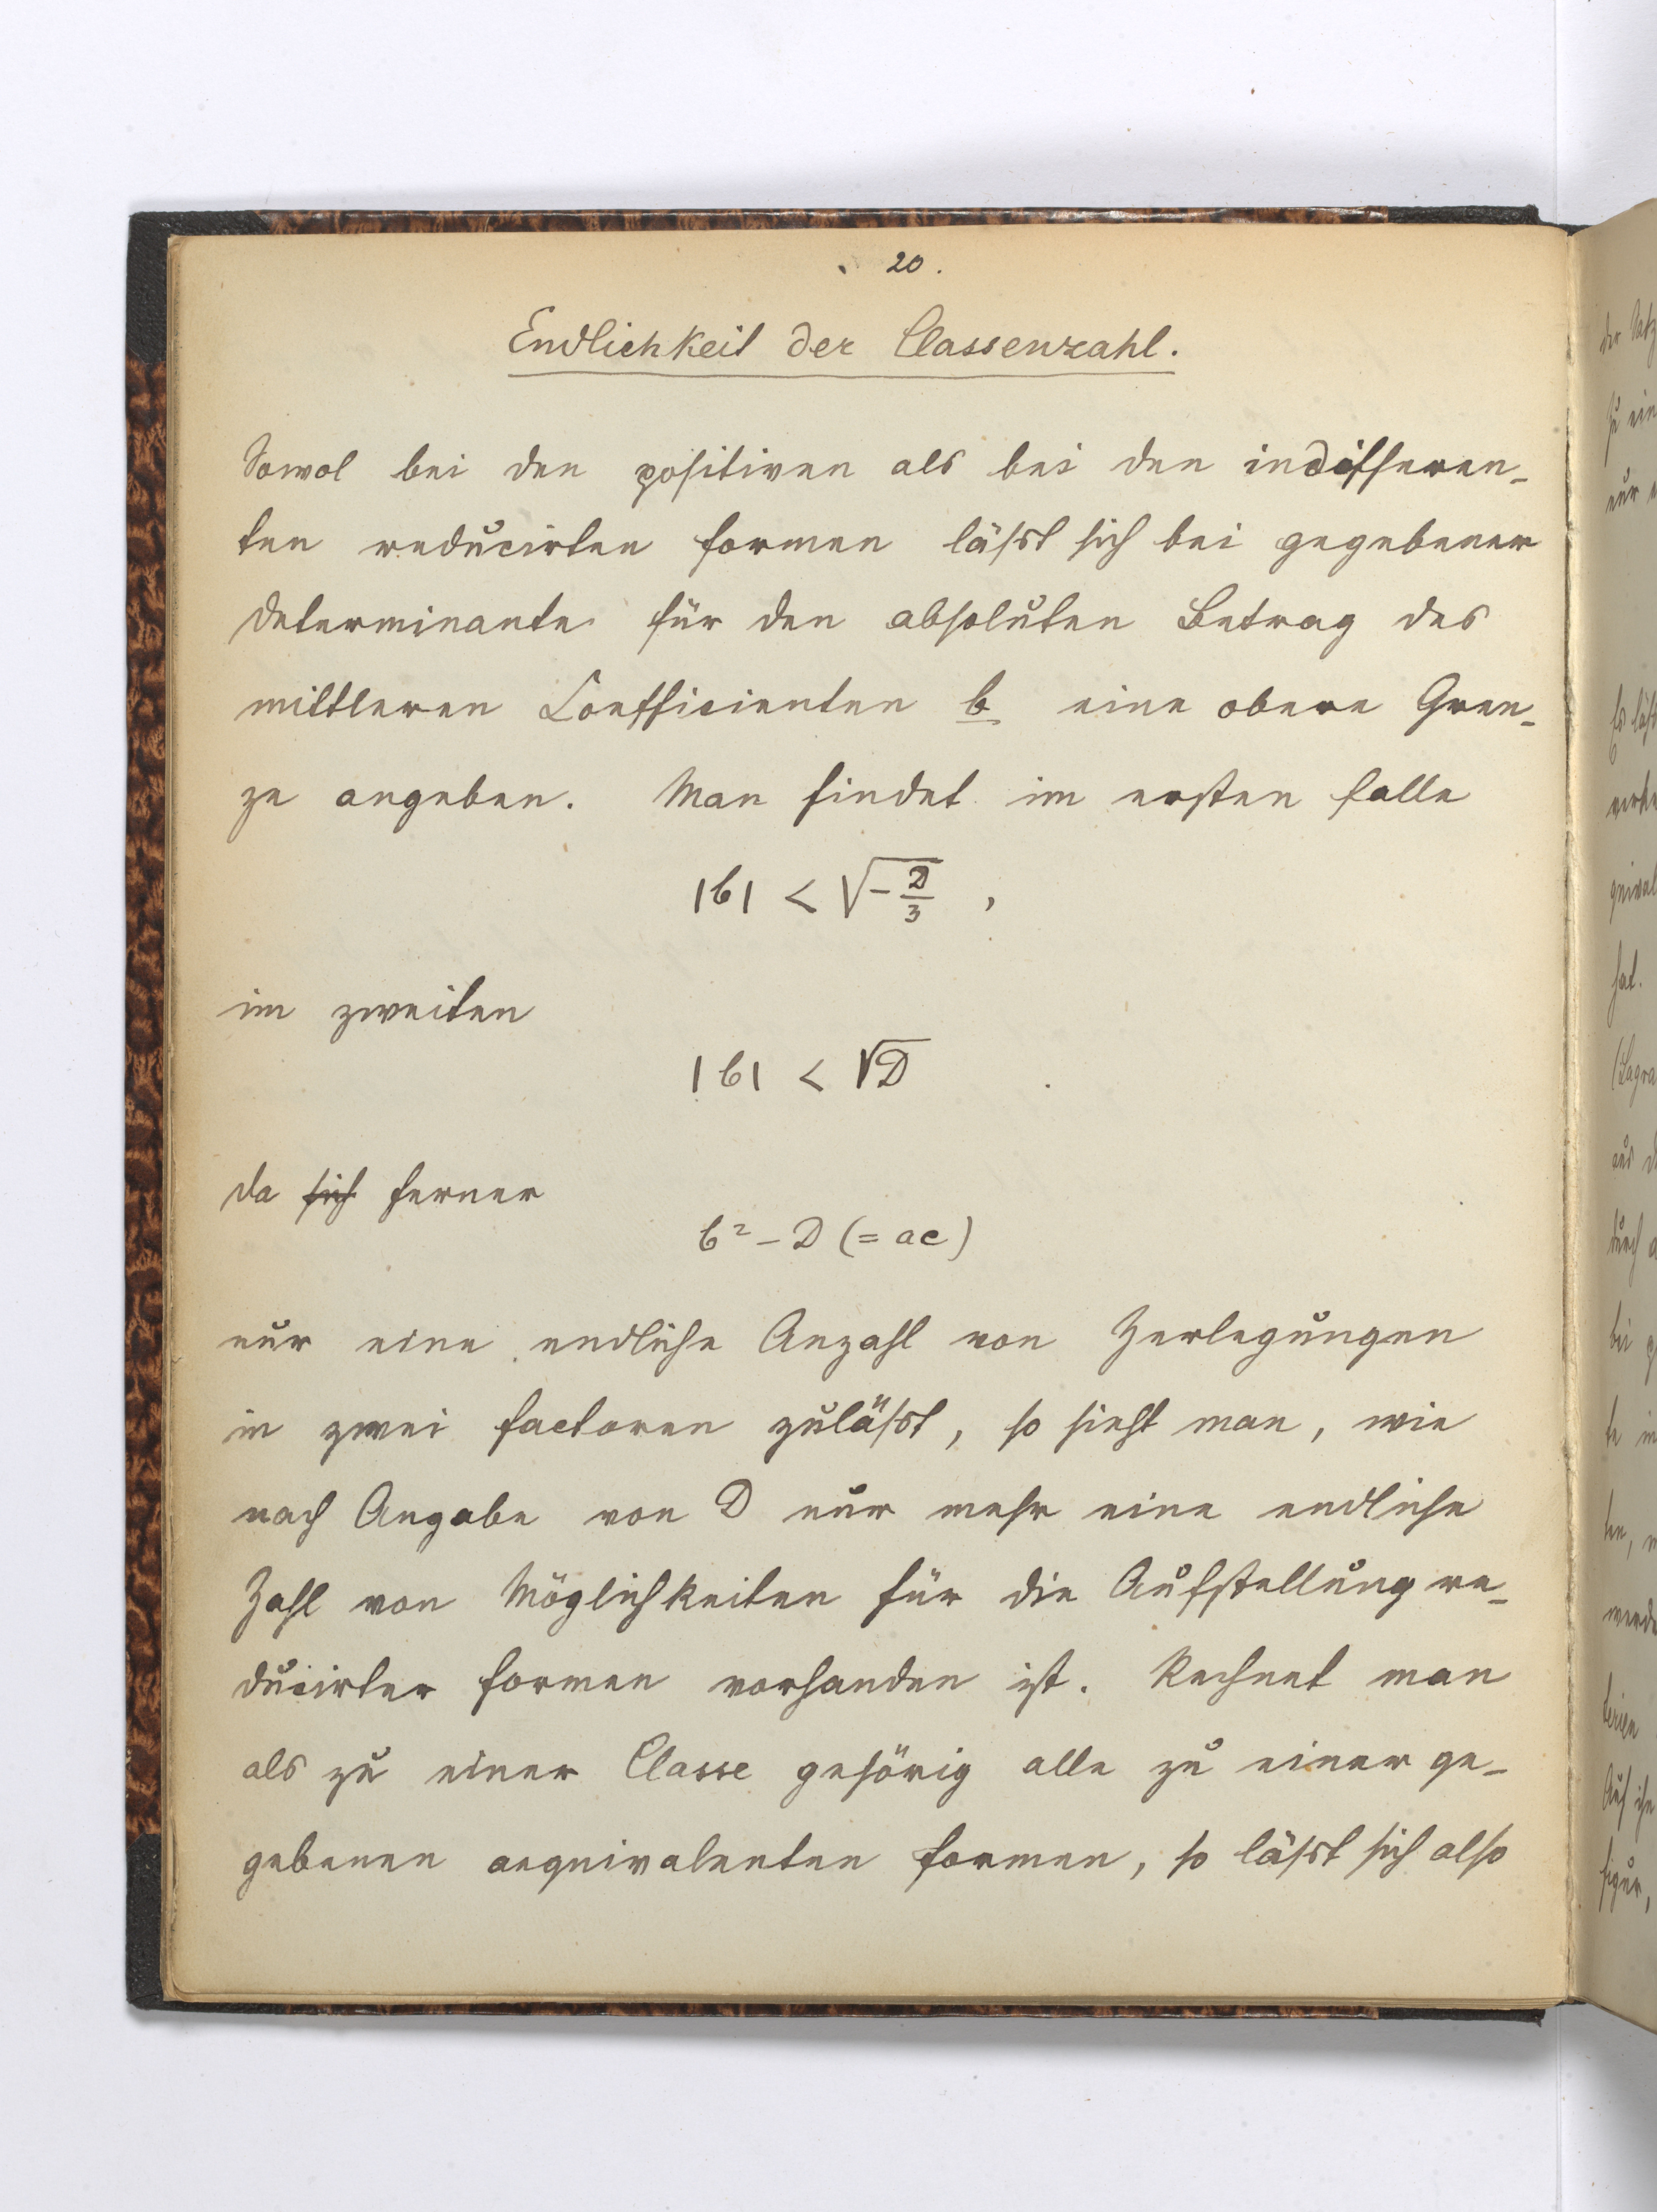 20.
Endlichkeit der Classenzahl.
Sowol bei den positiven als bei den indifferen-
ten reducirten Formen läßt sich bei gegebener
Determinante für den absoluten Betrag des
mittleren Coefficienten b eine obere Gren-
ze angeben. Man findet im ersten Falle
|b| < √-D/3 ,
im zweiten
|b| < √D .
da sich ferner
b² - D (= ac)
nur eine endliche Anzahl von Zerlegungen
in zwei Factoren zuläßt, so sieht man, wie
nach Angabe von D nur mehr eine endliche
Zahl von Möglichkeiten für die Aufstellung re-
ducirter Formen vorhanden ist. Rechnet man
als zu einer Classe gehörig alle zu einer ge-
gebenen aequivalenten Formen, so läßt sich also